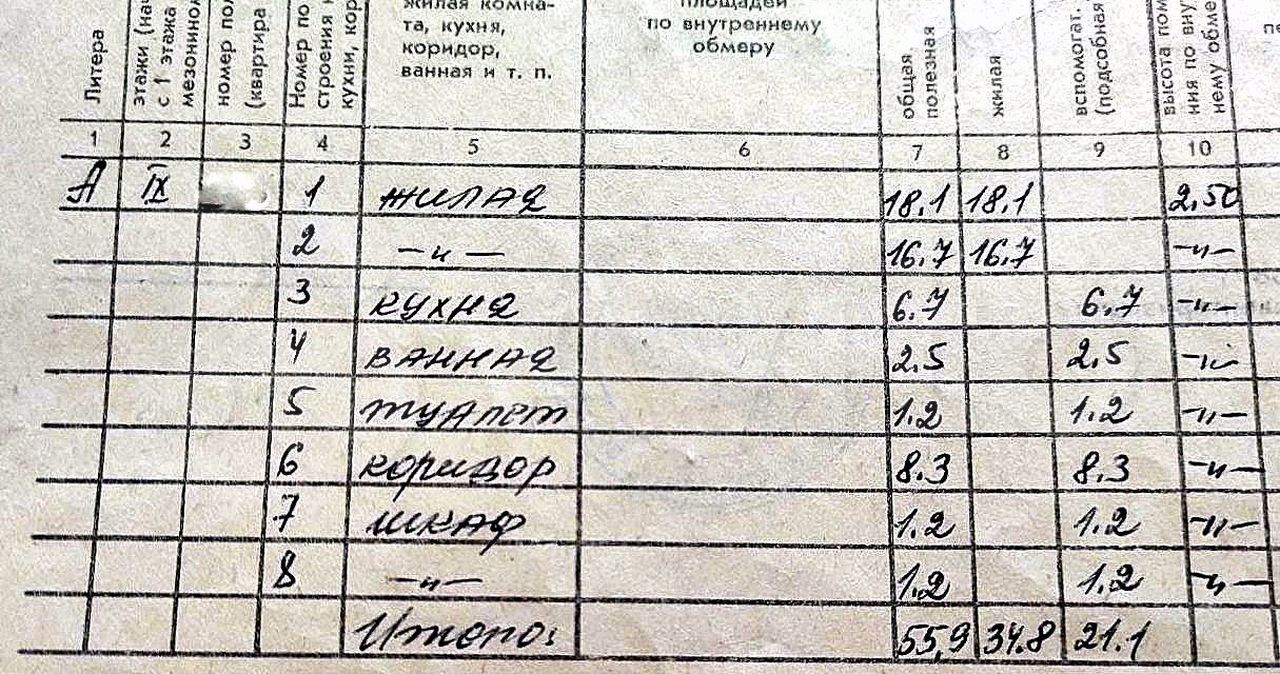 Литера
этажи (нач
с 1 этажа
мезонином
номер пол
(квартира
Номер по
строения
кухни, кор
жилая комна-
та, кухня,
коридор,
ванная и т. п.
площадей
по внутреннему
обмеру
общая
полезная
жилая
вспомогат.
(подсобная
высота пом
ния по вну
нему обме
1 2 3 4 5 6 7 8 9 10
А IX 1 жилая 18.1 18.1 2.50
2 —и— 16.7 16.7 —и—
3 кухня 6.7 6.7 —и—
4 ванная 2.5 2.5 —и—
5 туалет 1.2 1.2 —и—
6 коридор 8.3 8.3 —и—
7 шкаф 1.2 1.2 —и—
8 —и— 1.2 1.2 —и—
Итого: 55,9 34.8 21.1